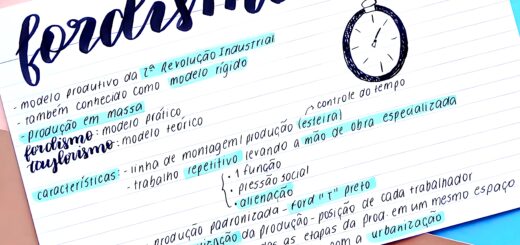 fordismo
- modelo produtivo da 2ª Revolução Industrial
- também conhecido como modelo rígido
- produção em massa
fordismo: modelo prático
taylorismo: modelo teórico
controle do tempo
características: - linha de montagem | produção (esteira)
- trabalho repetitivo levando a mão de obra especializada
• 1 função
• pressão social
• alienação
produção padronizada - Ford "T" preto
da produção - posição de cada trabalhador
as etapas da prod. em um mesmo espaço
com a urbanização